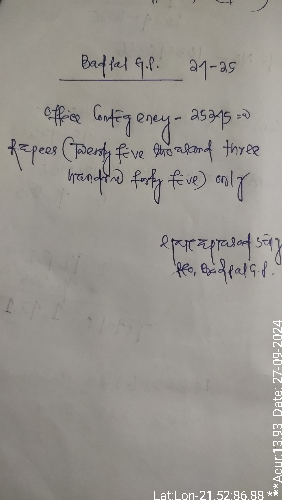 Badpal G.P. 24-25
Office Contigency - 25345=00
Rupees (Twenty five thousand three
hundred forty five) only
PEO, Badpal G.P.
Lat:Lon-21.52:86.88 ***Acur:13.93 Date: 27-09-2024